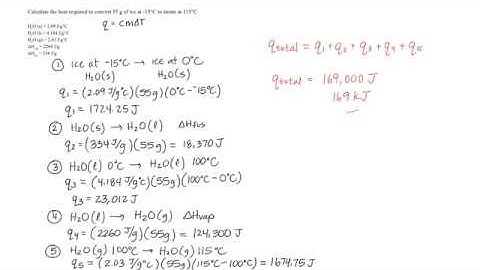 Calculate the heat required to convert 55 g of ice at -15°C to steam at 115°C.
q = cmΔT
H₂O (s) = 2.09 J/g°C
H₂O (l) = 4.184 J/g°C
H₂O (g) = 2.03 J/g°C
ΔHvap = 2260 J/g
ΔHfus = 334 J/g
① Ice at -15°C → ice at 0°C
H₂O(s) H₂O(s)
q₁ = (2.09 J/g°C)(55g)(0°C - -15°C)
q₁ = 1724.25 J
② H₂O(s) → H₂O(l) ΔHfus
q₂ = (334 J/g)(55g) = 18,370 J
③ H₂O(l) 0°C → H₂O(l) 100°C
q₃ = (4.184 J/g°C)(55g)(100°C - 0°C)
q₃ = 23,012 J
④ H₂O(l) → H₂O(g) ΔHvap
q₄ = (2260 J/g)(55g) = 124,300 J
⑤ H₂O(g) 100°C → H₂O(g) 115°C
q₅ = (2.03 J/g°C)(55g)(115°C - 100°C) = 1674.75 J
qtotal = q₁ + q₂ + q₃ + q₄ + q₅
qtotal = 169,000 J
169 kJ